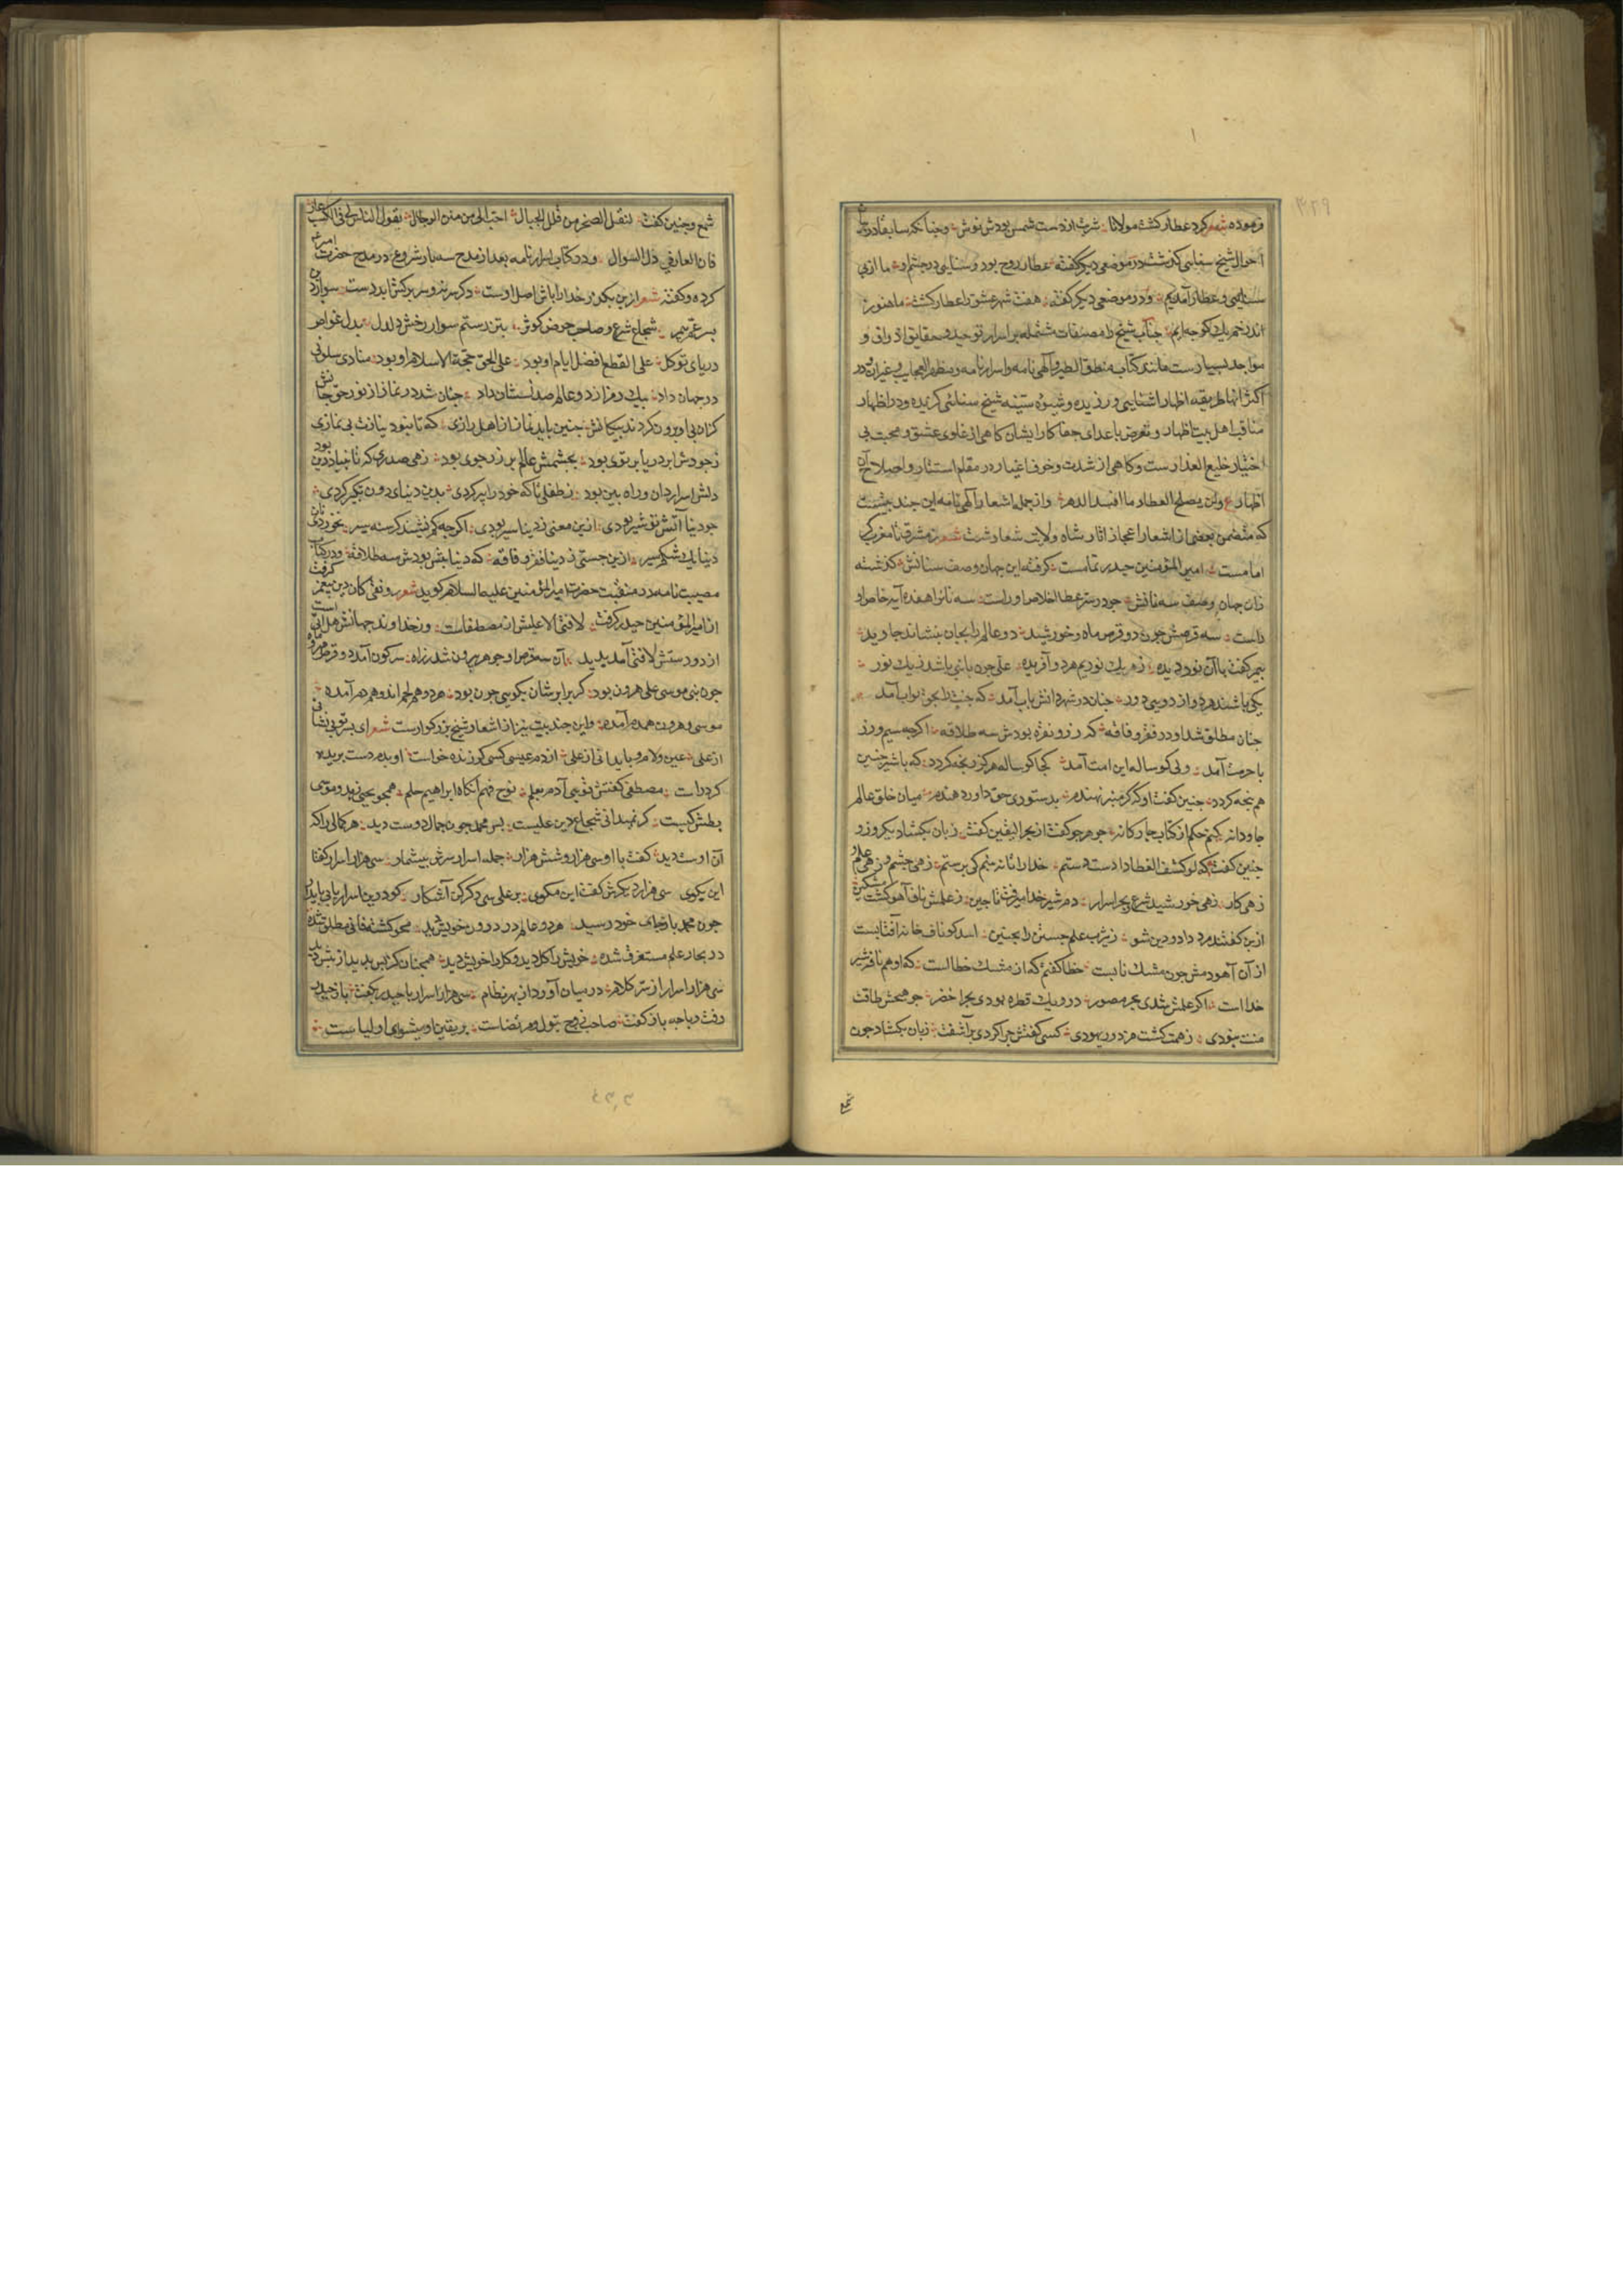 فرموده شعر کرد عطار کشت مولانا شربت از دست شمس بودش نوش وچنانکه سابقا در
احوال شیخ سنایی کذشت در موضعی دیکر کفته عطار روح بود و سنایی دو چشم او ما از پی
سنایی وعطار آمدیم ودر موضعی دیکر کفته هفت شهر عشق را عطار کشت ما هنوز
اندر خم یک کوچه ایم جناب شیخ را مصنفات مشتمله بر اسرار توحید وحقایق اذواق و
مواجد بسیارست مانند کتاب منطق الطیر والهی نامه واسرارنامه ومظهر العجایب وغیران ودر
اکثر انها طریقه اظهار اشنایی ورزیده وشیوه ستیه شیخ سنائی کزیده ودر اظهار
مناقب اهل بیت اظهار وتعرض باعدای جفا کار ایشان کاهی از غلوی عشق ومحبت بی
اختیار خلیع العذارست وکاهی از شدت وخوف اغیار در مقام استتار واصلاح آن
اظهار ع ولن یصلح العطار ما افسد الدهر واز جمله اشعار الهی نامه این چند بیتست
که متضمن بعضی از اشعار اعجاز اثار شاه ولایت شعارست شعر ز مشرق تا بمغرب کر
امامست امیر المؤمنین حیدر تمامست کرفته این جهان وصف سنانش کذشته
زان جهان وصف سه نانش چو در سر عطا اخلاص او راست سه نان را هفده آیه خاص او
راست سه قرصش چون دو قرص ماه وخورشید دو عالم را بخوان بنشاند جاوید
پیمبر کفت با آن نور دیده ز یک نوریم هر دو آفریده علی چون با نبی باشد ز یک نور
یکی باشند هر دو از دویی دور چنان در شهر دانش باب آمد که جنت را بحق بواب آمد
چنان مطلق شد او در فقر وفاقه که زر ونقره بودش سه طلاقه اکرچه سیم وزر
با حرمت آمد ولی کوساله این امت آمد کجا کوساله هرکز رنجه کردد که با شیر چنین
هم پنجه کردد چنین کفت او که کر منبر نهندم بدستوری حق داور دهندم میان خلق عالم
جاودانه کنم حکم از کتاب چار کانه چو هرچو کفت از بحر الیقین کفت زبان بکشاد یکروز و
چنین کفت که لو کشف الغطا دادست دستم خدا را تا نه بینم کی پرستم زهی چشم و زهی علم و
زهی کار زهی خورشید شرع وبحر اسرار دم شیر خدا میرفت تا چین ز علمش ناف آهو کشت مشکین
ازین کفتند مرد داد ودین شو ز یثرب علم جستن را بچین اسد کو ناف خانه افتابست
از آن آهو دمش چون مشک نابست خطا کفتم که از مشک خطاست که او هم ناف شیر
خدا است اکر علمش شدی بحر مصور درو یک قطره بودی بحر اخضر چو هیچش طاقت
منت نبودی ز همت کشت مزدور یهودی کسی کفتش چرا کردی برآشفت زبان بکشاد چون
شمع
شمع وچنین کفت لنقل الصخر من قلل الجبال احب الی من منن الرجال یقول الناس لی فی الکسب عار
فان العار فی ذل السوال ودر کتاب اسرارنامه بعد از مدح سه یار شروع در مدح حضرت امیر
کرده وکفته شعر
شجاع شرع وصاحب حوض کوثر بتن رستم سوار رخش دلدل بدل غواص
دریای توکل علی القطع افضل ایام او بود علی الحق حجة الاسلام او بود منادی سلونی
در جهان داد بیک رمز از دو عالم صد نشان داد چنان شد در نماز از نور حق جانش
که از پی او برون کردند پیکانش چنین باید نماز از اهل رازی که تا نبود نمازت بی نمازی
ز جودش ابر دریا پرتوی بود بچشمش عالم پر زر جوی بود زهی صدری که تا بنیاد دین بود
دلش اسرار دان وراه بین بود ز طفلی تا که خود را پیر کردی بدین دنیای دون تکبیر کردی
چو دنیا آتش وتو شیر بودی ازین معنی ز دنیا سیر بودی اکرچه کم نشیند کرسنه سیر نخوردی نان
دنیا یک شکم سیر ازین جستی ز دنیا فقر وفاقه که دنیا پیش بودش سه طلاقه ودر کتاب
مصیبت نامه در منقبت حضرت امیر المؤمنین علیه السلام کوید شعر رونقی کان دین پیغمبر کرفت
از امیر المؤمنین حیدر کرفت لا فتی الا علیش از مصطفاست وز خداوند جهانش هل اتی است
از دو دستش لا فتی آمد پدید آن سه قرص او چو بیرون شد ز راه سرنکون آمد دو قرص مهر وماه
چون نبی موسی علی هرون بود کر برابرشان نکویی چون بود هر دو هم لحم اند وهم دم آمده
موسی وهرون همدم آمده واین چند بیت نیز از اشعار شیخ بزرکوارست شعر
از علی عین ولام ویا بدانی از علی از دم عیسی کسی کو زنده خواست او بدم دست بریده
کرد راست مصطفی کفتش توئی آدم بعلم نوح فهم آنکاه ابراهیم حلم همچو یحیی زهد وموسی
بطش کیست کر نمیدانی شجاع دین علیست پس محمد چون جمال دوست دید هر کمالی را که
آن اوست دید کفت با او سی هزار وشش هزار جمله اسرار سرش بیشمار سی هزار اسرار کفتا
این بکوی سی هزار دیکرش کفت این مکوی بر علی سی دکر کن آشکار
چون محمد باز جای خود رسید هر دو عالم در درون خویش دید محو کشته فانی مطلق شده
در بحار علم مستغرق شده خویش را کل دید وکل را خویش دید همچنان کز پس بدید از پیش دید
سی هزار اسرار از سر کلام در میان آورد از بهر نظام سی هزار اسرار با حیدر بکفت باز حیدر
رفت وبا چه باز کفت صاحب زوج بتول ومرتضاست بر یقین او پیشوای اولیاست